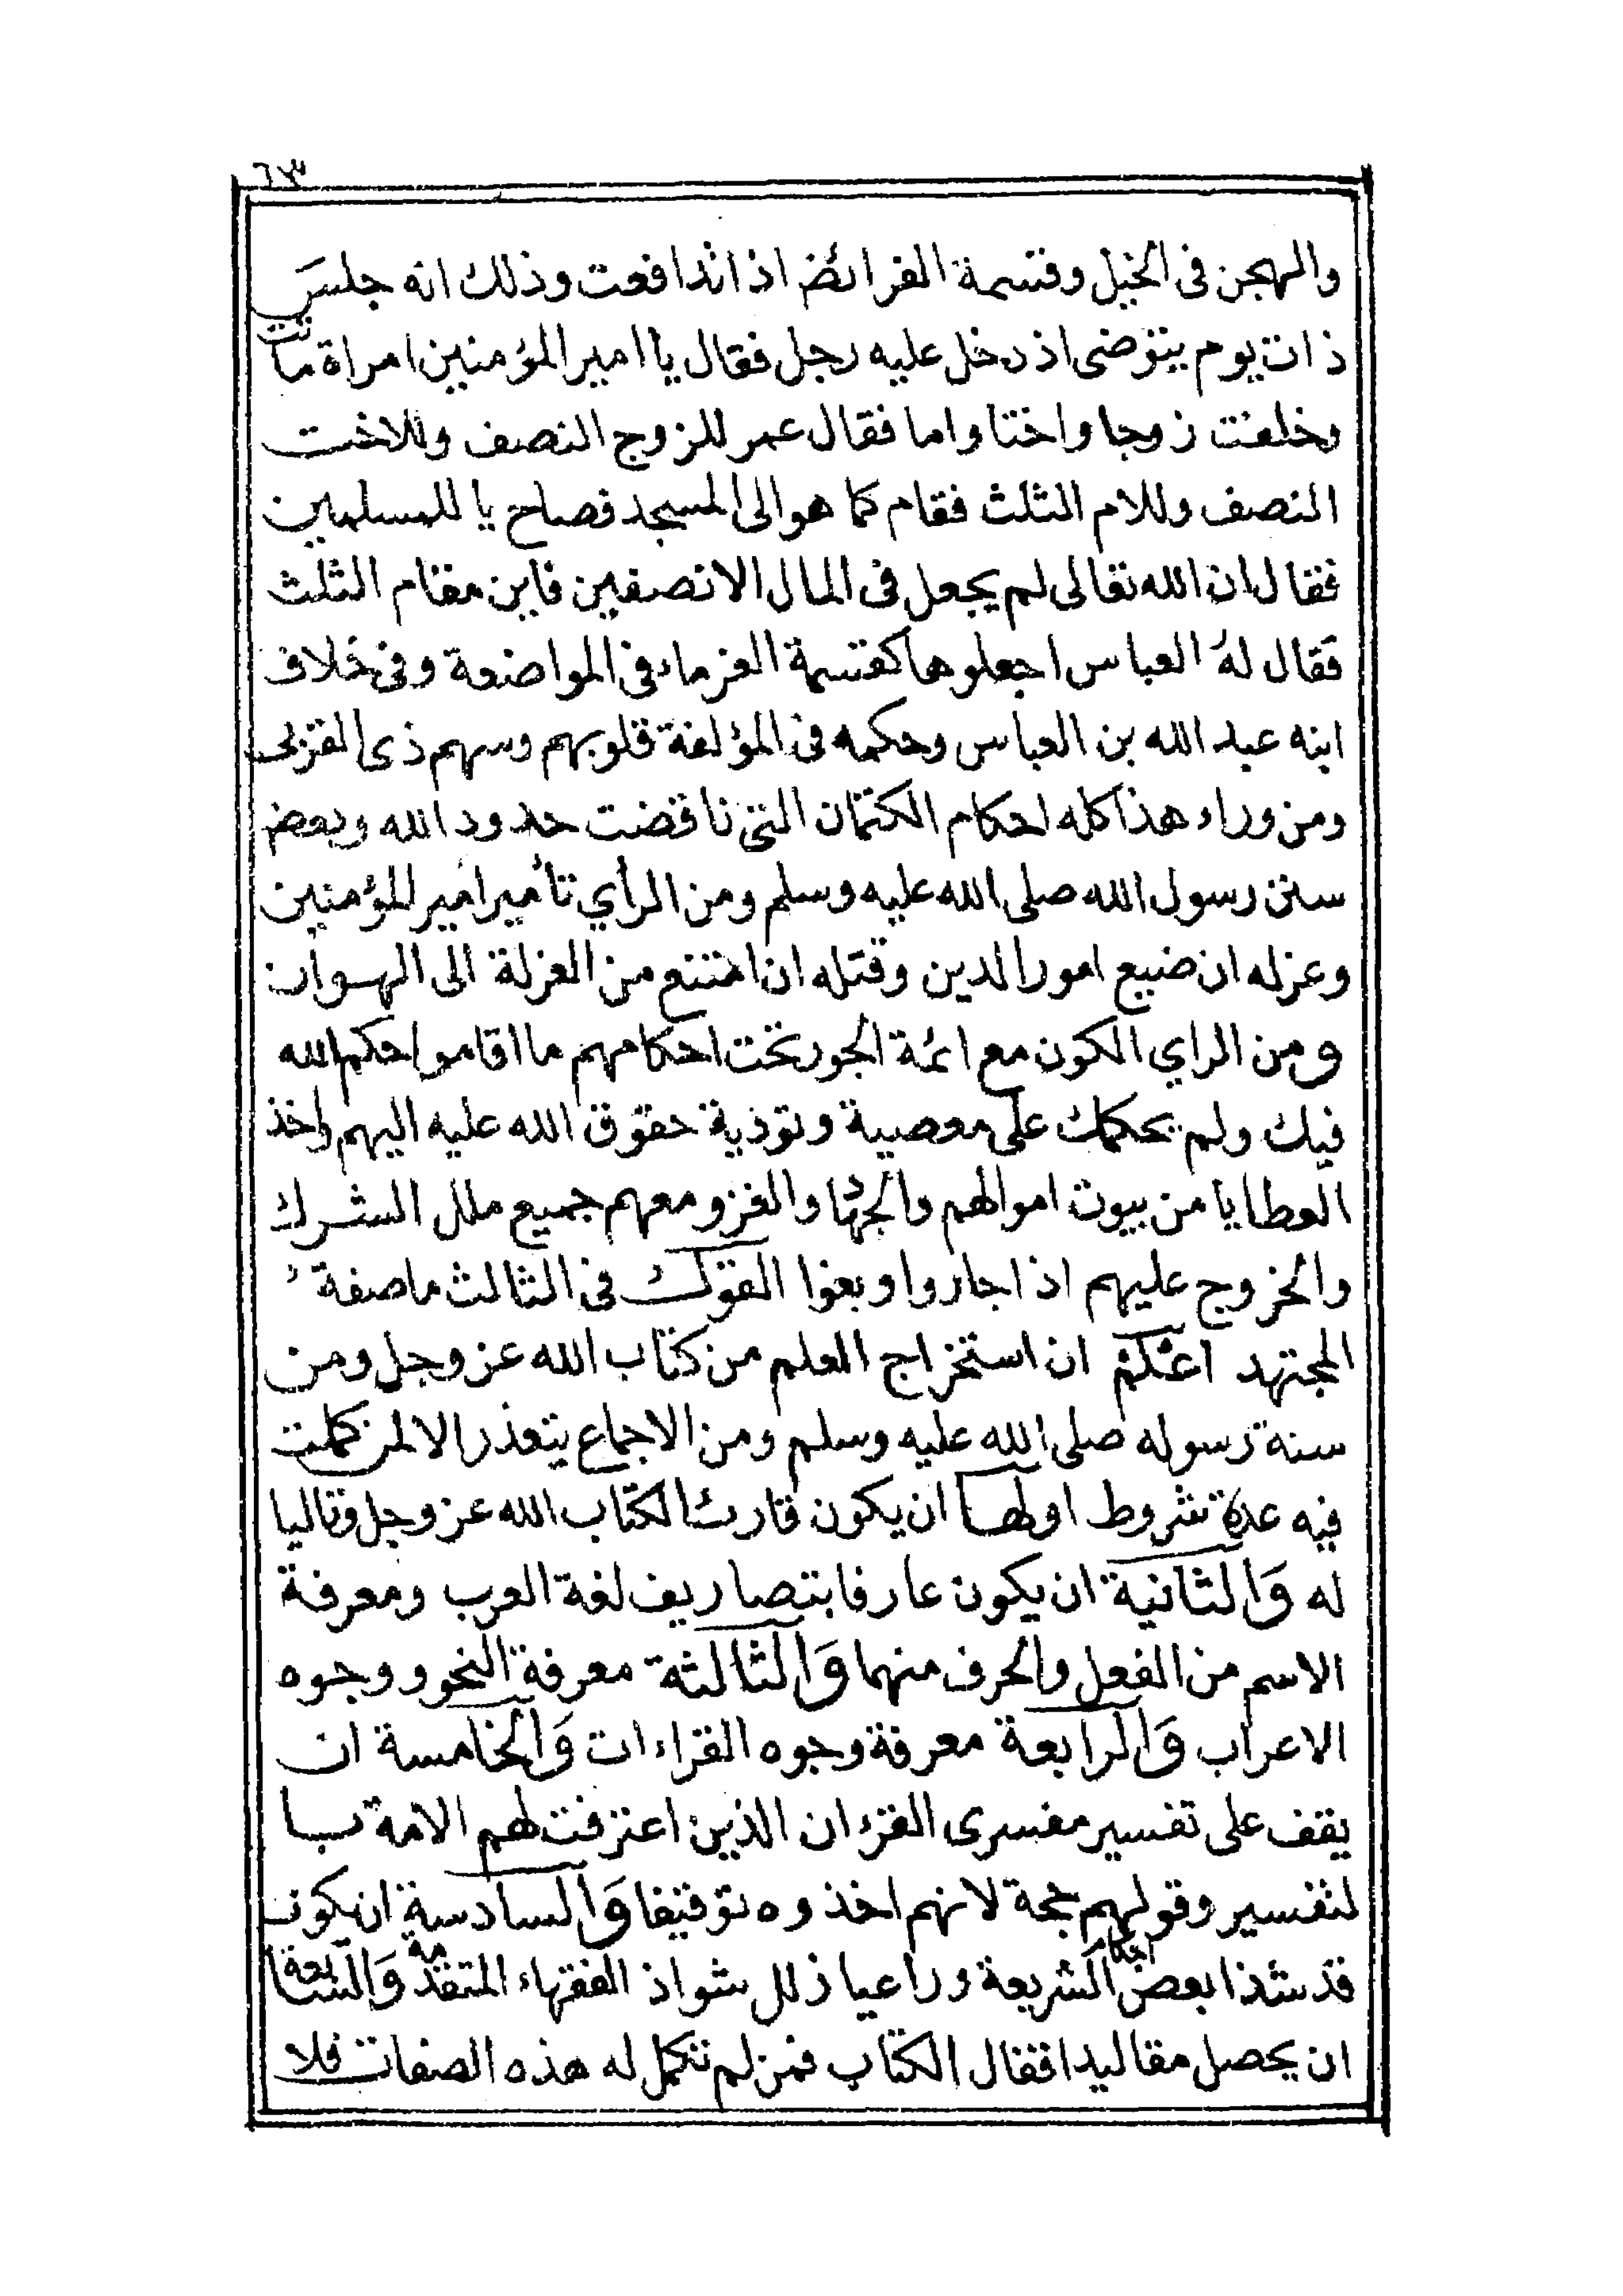 ٦٣
والهجن فى الخيل وقسمة الفرائض اذا تدافعت وذلك انه جلس
ذات يوم يتوضى اذ دخل عليه رجل فقال يا امير المؤمنين امراة ماتت
وخلفت زوجا واختا واما فقال عمر للزوج النصف وللاخت
النصف وللام الثلث فقام كما هو الى المسجد فصاح يا للمسلمين
فقال ان الله تعالى لم يجعل فى المال الا نصفين فاين مقام الثلث
فقال له العباس اجعلوها كقسمة الغرماء فى المواضعة وفى خلاف
ابنه عبد الله بن العباس وحكمه فى المؤلفة قلوبهم وسهم ذى القربى
ومن وراء هذا كله احكام الكتمان التى ناقضت حدود الله وبعض
سنن رسول الله صلى الله عليه وسلم ومن الرأي تأمير امير المؤمنين
وعزله ان ضيع امور الدين وقتله ان امتنع من العزلة الى الهوان
ومن الراي الكون مع ائمة الجور تحت احكامهم ما اقاموا حكم الله
فيك ولم يحكمك على معصية وتؤدية حقوق الله عليه اليهم واخذ
العطايا من بيوت اموالهم والجهاد والغزو معهم جميع ملل الشرك
والخروج عليهم اذا جاروا وبغوا القول فى الثالث ما صفة
المجتهد اعلم ان استخراج العلم من كتاب الله عز وجل ومن
سنة رسوله صلى الله عليه وسلم ومن الاجماع يتعذر الا لمن كملت
فيه عدة شروط اولها ان يكون قارئا لكتاب الله عز وجل وتاليا
له والثانية ان يكون عارفا بتصاريف لغة العرب ومعرفة
الاسم من الفعل والحرف منهما والثالثة معرفة النحو ووجوه
الاعراب والرابعة معرفة وجوه القراءات والخامسة ان
يقف على تفسير مفسرى القرءان الذين اعترفت لهم الامة با
لتفسير وقولهم حجة لانهم اخذوه توقيفا والسادسة ان يكون
قد شذا بعض احكام الشريعة وراعيا زلل شواذ الفقهاء المتقدمة والسابعة
ان يحصل مقاليد اقفال الكتاب فمن لم تكمل له هذه الصفات فلا